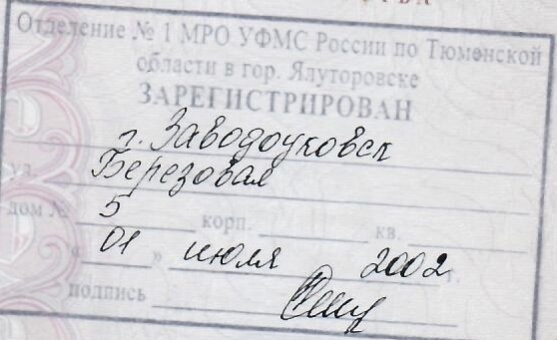 Отделение № 1 МРО УФМС России по Тюменской
области в гор. Ялуторовске
ЗАРЕГИСТРИРОВАН
г. Заводоуковск
ул. Березовая
дом № 5 корп. кв.
« 01 » июля 2002 г.
подпись